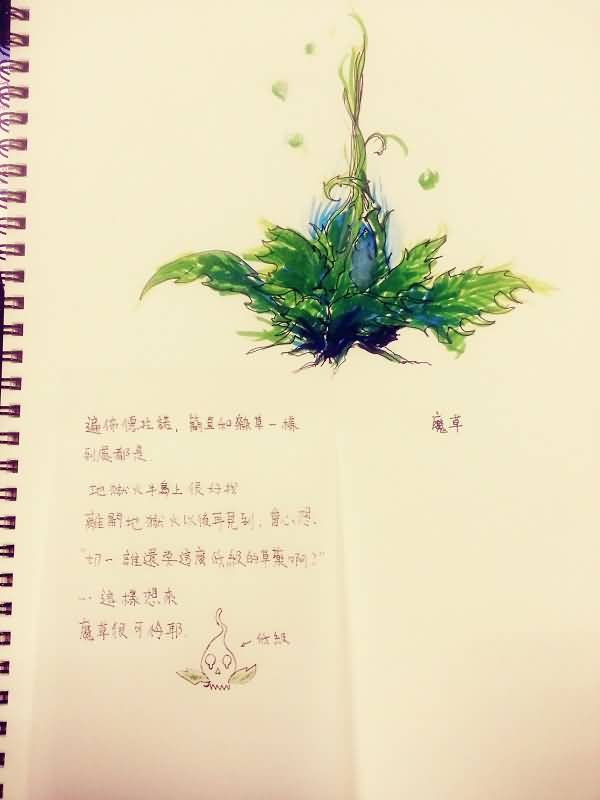 遍佈德拉諾，簡直如雜草一樣
到處都是.
地獄火半島上很好找
離開地獄火以後再見到，會心想、
"切－誰還要這麼低級的草藥啊？"
…這樣想來
魔草很可憐耶.
低級
魔草